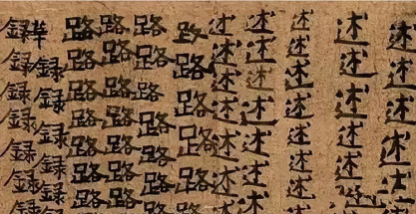 述述述述述述
述述述述述述
述述述述述述述述
述述述述述述述
述述述述述述述述
路路路路路
路路路路路路路
路路路路路路路
路路路路路路路
録録録録録
録録録録録録